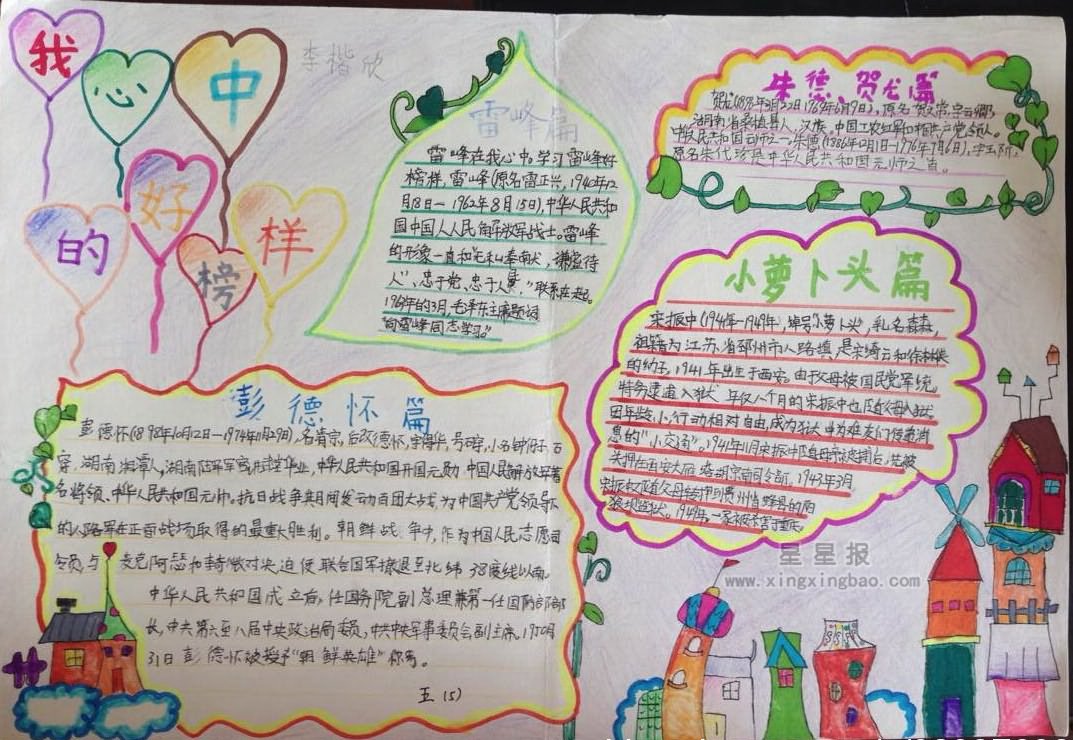 我
中
的
好
榜
样
李楷欣
雷峰篇
雷峰在我心中。学习雷峰好
榜样，雷峰(原名雷正兴，1940年12
月18日—1962年8月15日)，中华人民共和
国中国人人民解放军战士。雷峰
的形象一直和"无私奉献、谦益待
人"、忠于党、忠于人民"联系在一起。
1963年的3月，毛泽东主席题词
"向雷峰同志学习"。
朱德、贺龙篇
湖南省桑植县人，汉族，中国工农红军和
中华人民共和国元帅之一。朱德(1886年12月1日—1976年7月6日)，字玉阶，
原名朱代珍是中华人民共和国元帅之首。
小萝卜头篇
宋振中(1941年—1949年)，绰号"小萝卜头"，乳名森森，
祖籍为江苏省邳州市八路镇，是宋绮云和徐林侠
的幼子，1941年出生于西安。由于父母被国民党军统
特务逮逋入狱，年仅八个月的宋振中也随父母入狱
因年龄小，行动相对自由，成为狱中为难友们传递消
息的"小交通"。1941年11月宋振中随母
1943年3月
彭德怀篇
彭德怀(1898年10月12日—1974年11月29日)，名清宗，后改德怀，字得华，号石穿，小名钟伢子、石
穿，湖南湘潭人，湖南陆军军官讲武堂毕业，中华人民共和国开国元勋，中国人民解放军著
名将领、中华人民共和国元帅。抗日战争其间发动百团大战，为中国共产党领导
的八路军在正面战场取得的最重大胜利。朝鲜战争中，作为中国人民志愿司
令员与麦克阿瑟和李奇微对决，迫使联合国军撤退至北纬38度线以南。
中华人民共和国成立后，任国务院副总理兼第一任国防部部
长，中共第六至八届中央政治局委员，中共中央军事委员会副主席。1950年10月
31日彭德怀被授予"朝鲜英雄"称号。
五(5)
星星报
www.xingxingbao.com